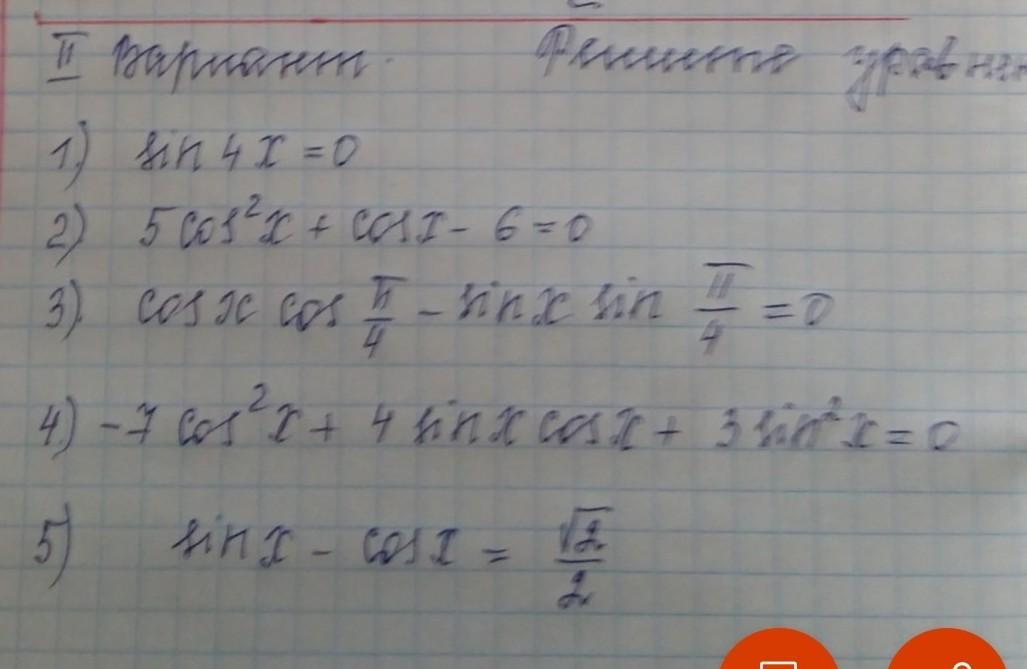 II Вариант. Решите уравнен
1) sin 4x = 0
2) 5 cos²x + cos x - 6 = 0
3) cos x cos π/4 - sin x sin π/4 = 0
4) -7 cos²x + 4 sin x cos x + 3 sin²x = 0
5) sin x - cos x = √2/2